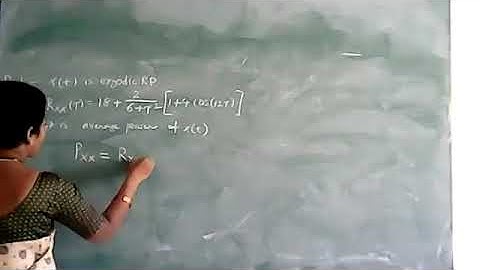 x(t) is ergodic RP
Rxx(τ) = 18 + 2/(6+τ²) [1+4 cos(12τ)]
is average power of x(t)
Pxx = Rx